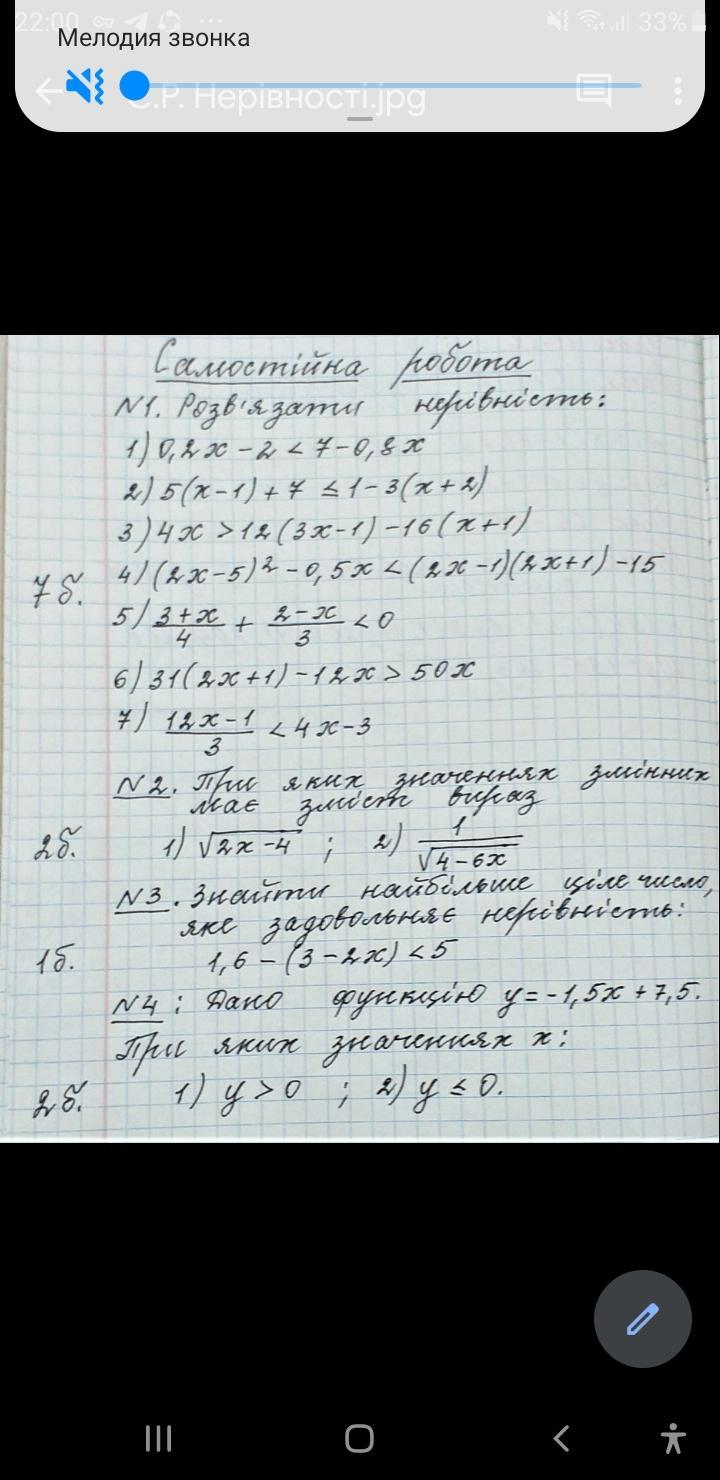 22:00 33%
Мелодия звонка
С.Р. Нерівності.jpg
Самостійна робота
N1. Розв'язати нерівність:
1) 0,2x - 2 < 7 - 0,8x
2) 5(x-1) + 7 ≤ 1 - 3(x+2)
3) 4x > 12(3x-1) - 16(x+1)
4) (2x-5)² - 0,5x < (2x-1)(2x+1) - 15
7б.
5) (3+x)/4 + (2-x)/3 < 0
6) 31(2x+1) - 12x > 50x
7) (12x-1)/3 < 4x-3
N2. При яких значеннях змінних
має зміст вираз
2б. 1) √(2x-4) ; 2) 1/√(4-6x)
N3. Знайти найбільше ціле число,
яке задовольняє нерівність:
1б. 1,6 - (3-2x) < 5
N4: Дано функцію y = -1,5x + 7,5.
При яких значеннях x:
2б. 1) y > 0 ; 2) y ≤ 0.